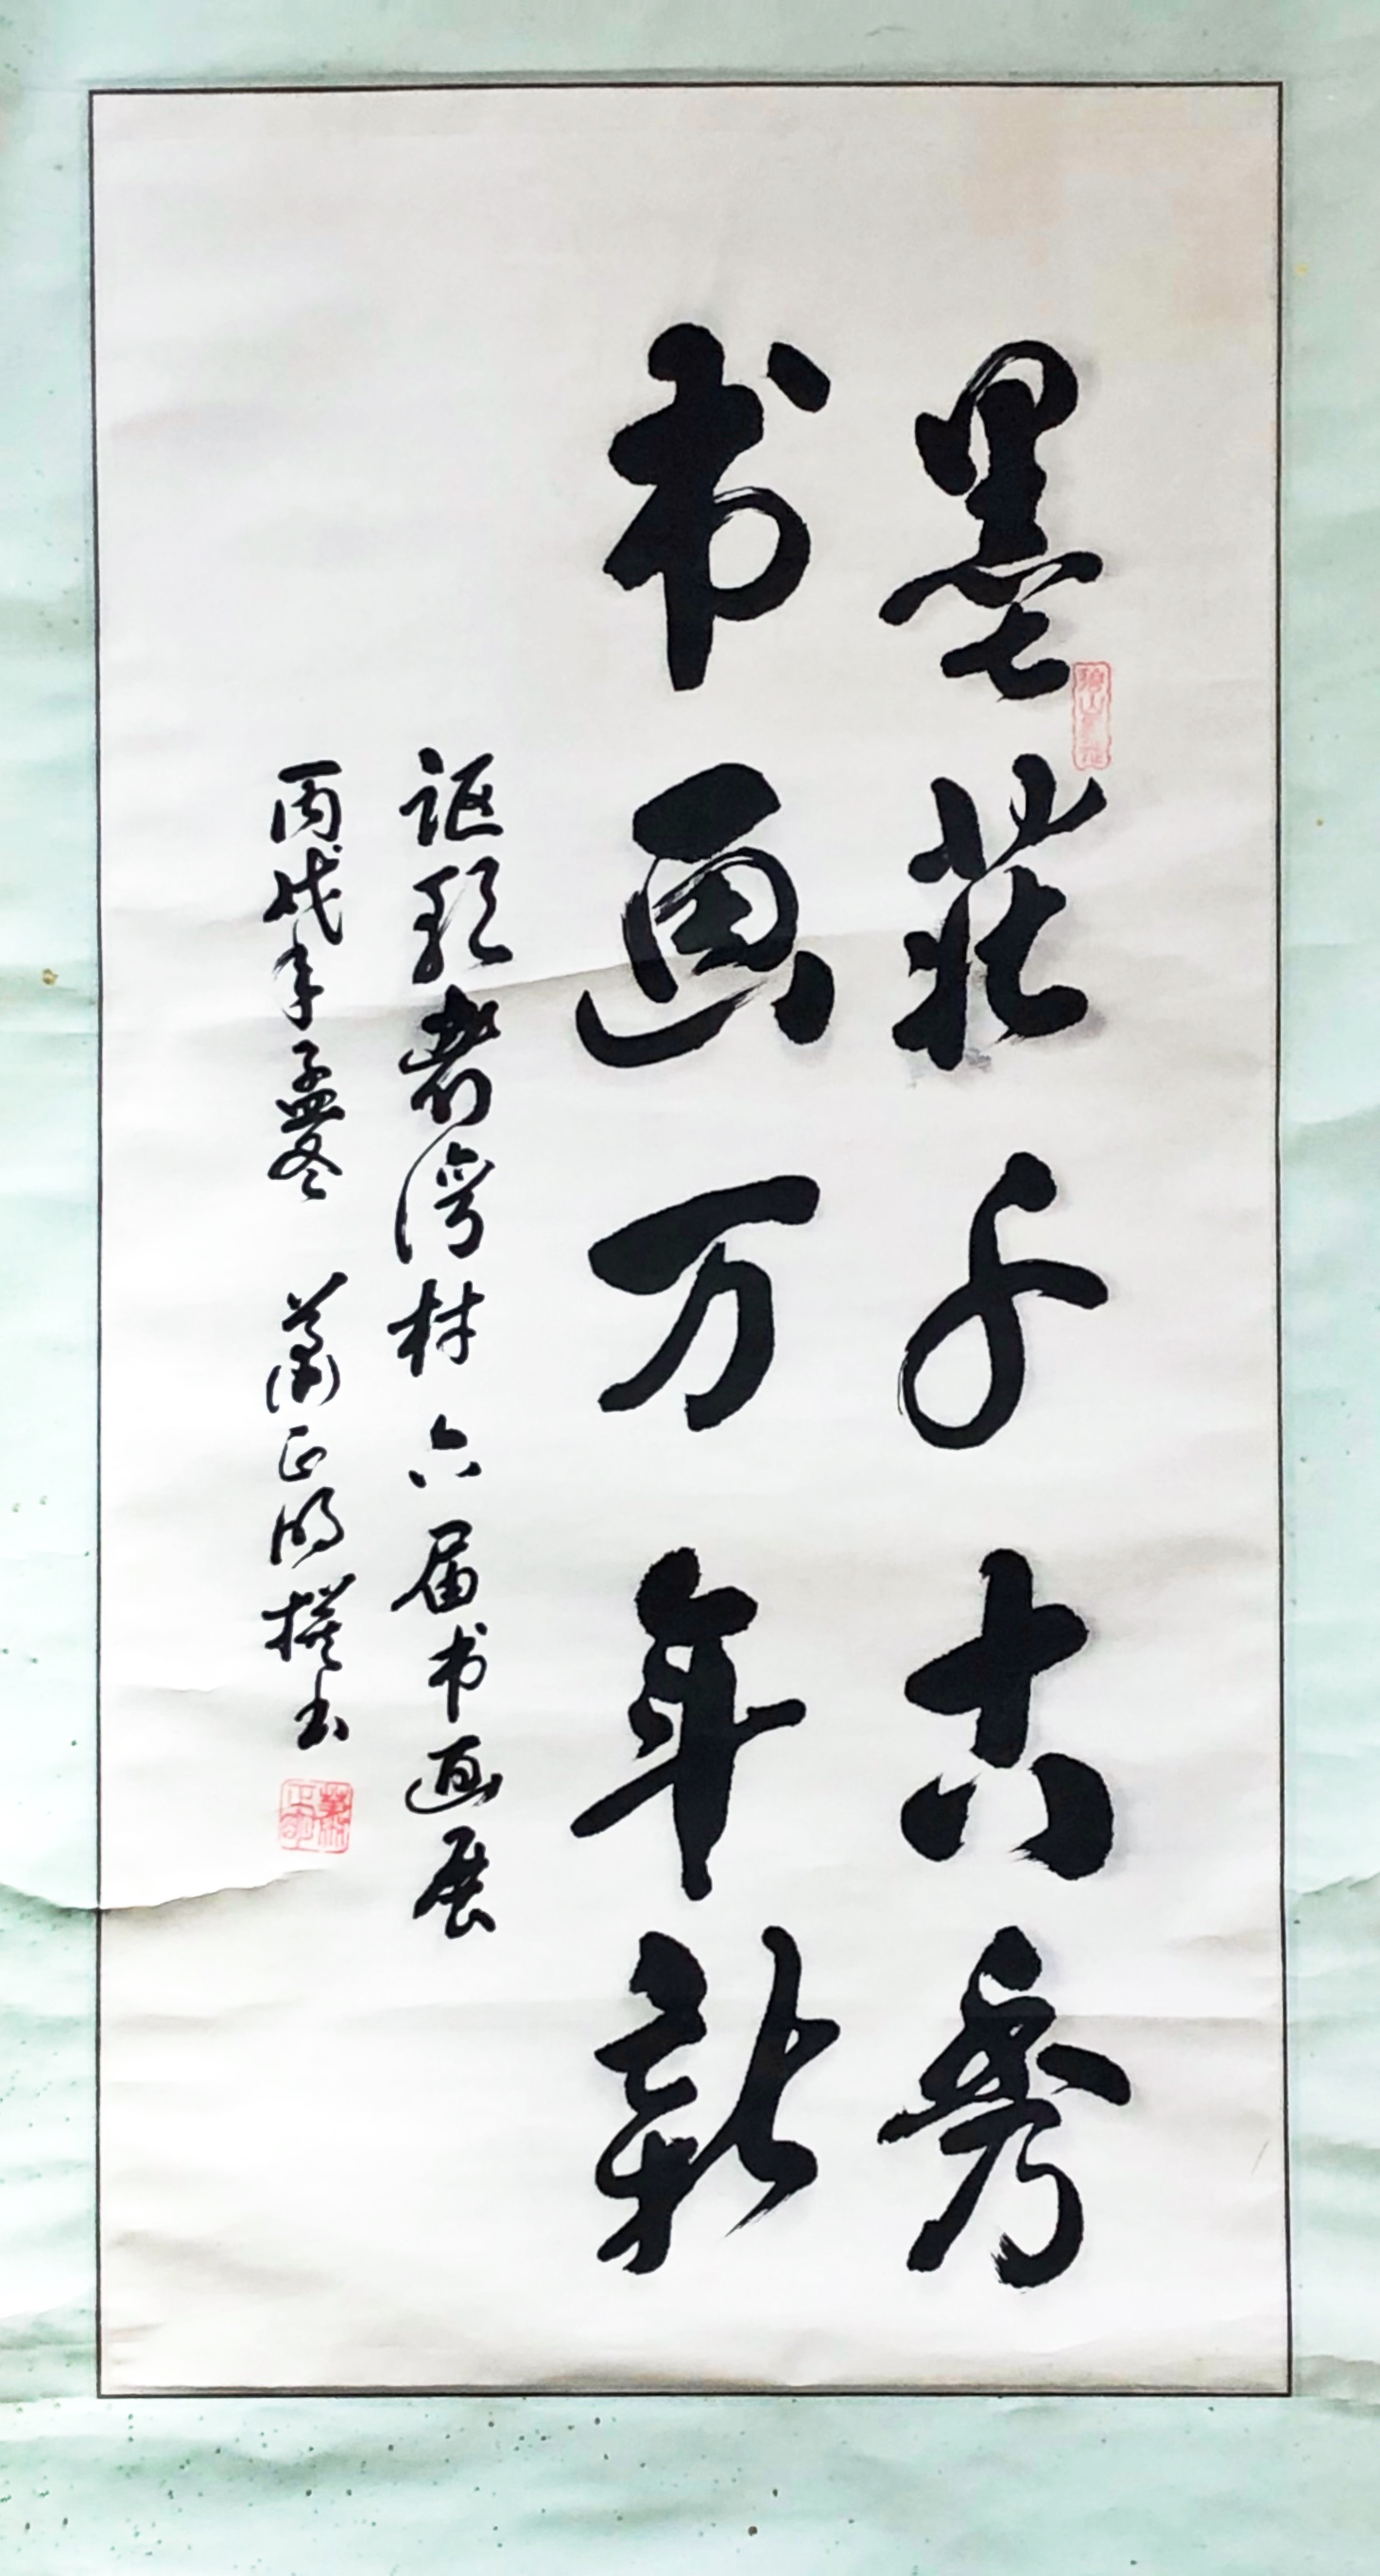 墨莊千古秀
书画万年新
讴歌湾村六届书画展
丙戌年孟冬 萧正明撰书